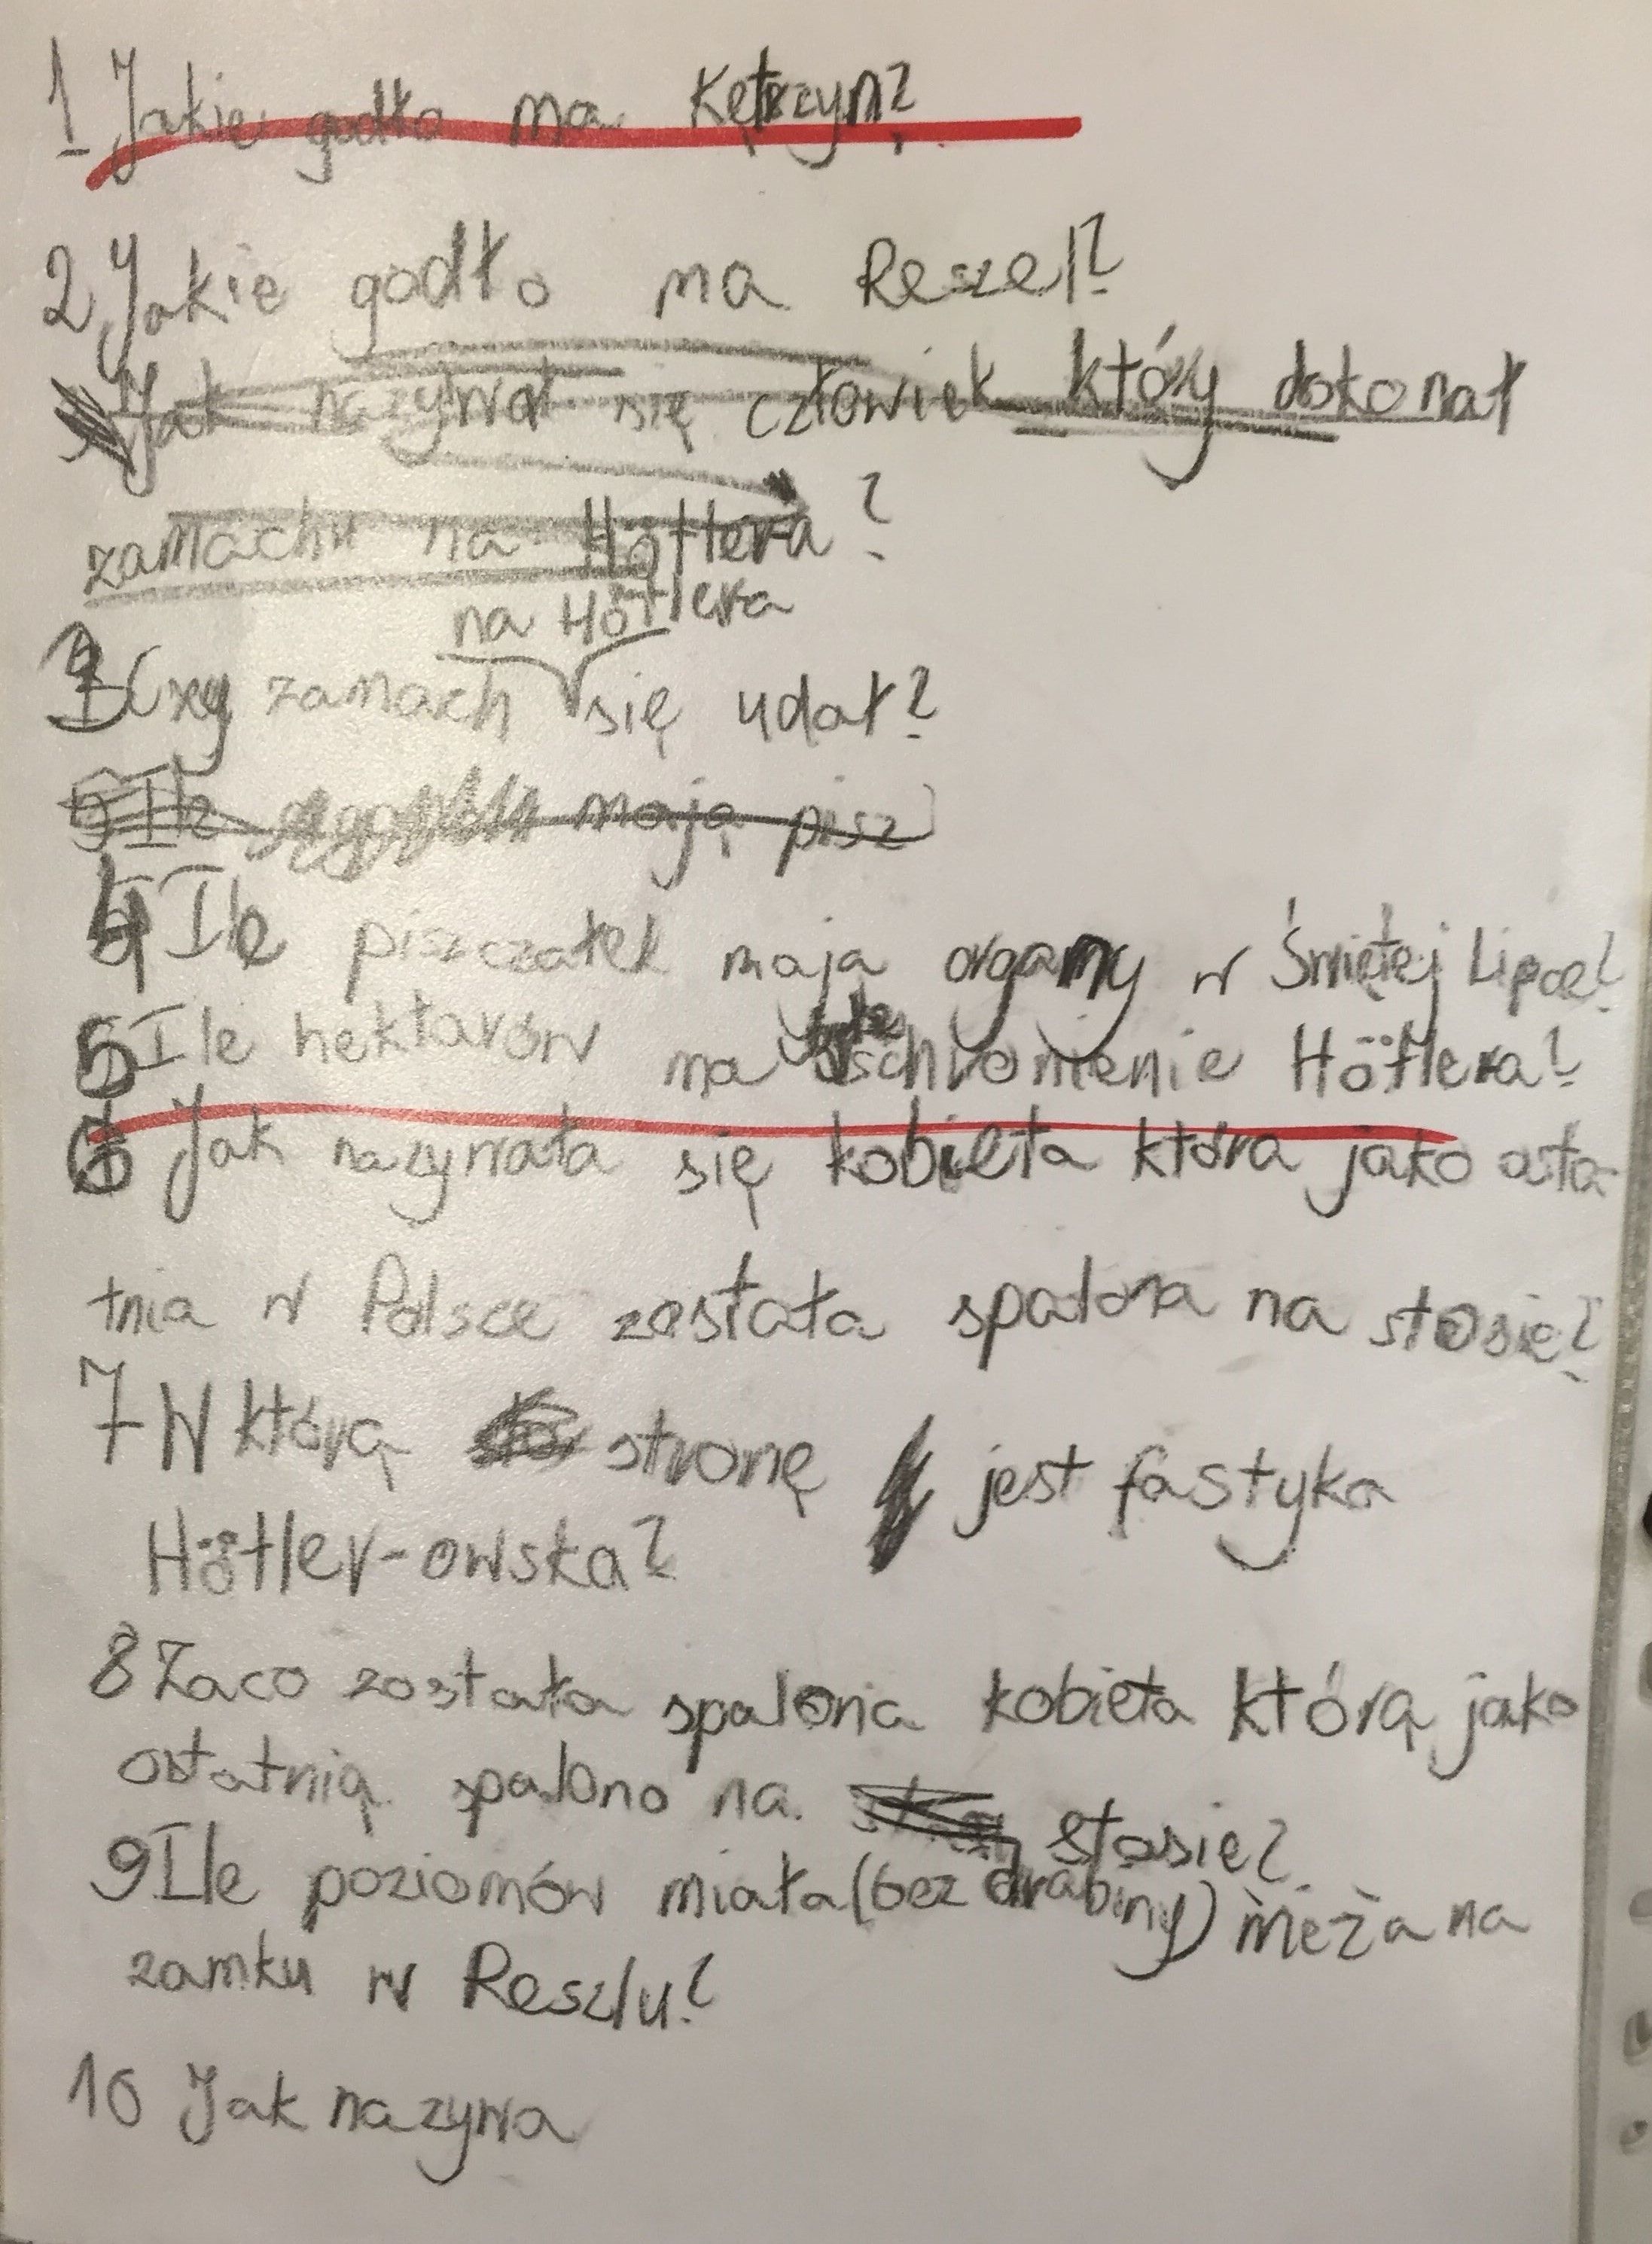 1 Jakie godło ma Kętrzyn?
2 Jakie godło ma Reszel?
Jak nazywał się człowiek który dokonał
zamachu na Hötlera?
na Hötlera
3 Czy zamach się udał?
5 Ile mają pisz
4 Ile piszczałek mają organy w Świętej Lipce?
5 Ile hektarów ma schronienie Hötlera?
6 Jak nazywała się kobieta która jako osta-
tnia w Polsce została spalona na stosie?
7 W którą stronę jest fastyka
Hötler-owska?
8 Zaco została spalona kobieta którą jako
ostatnią spalono na stosie?
9 Ile poziomów miała (bez drabiny) wieża na
zamku w Reszlu?
10 Jak nazywa